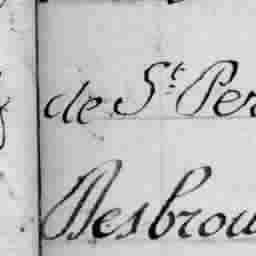 de S.t Per
Desbrou